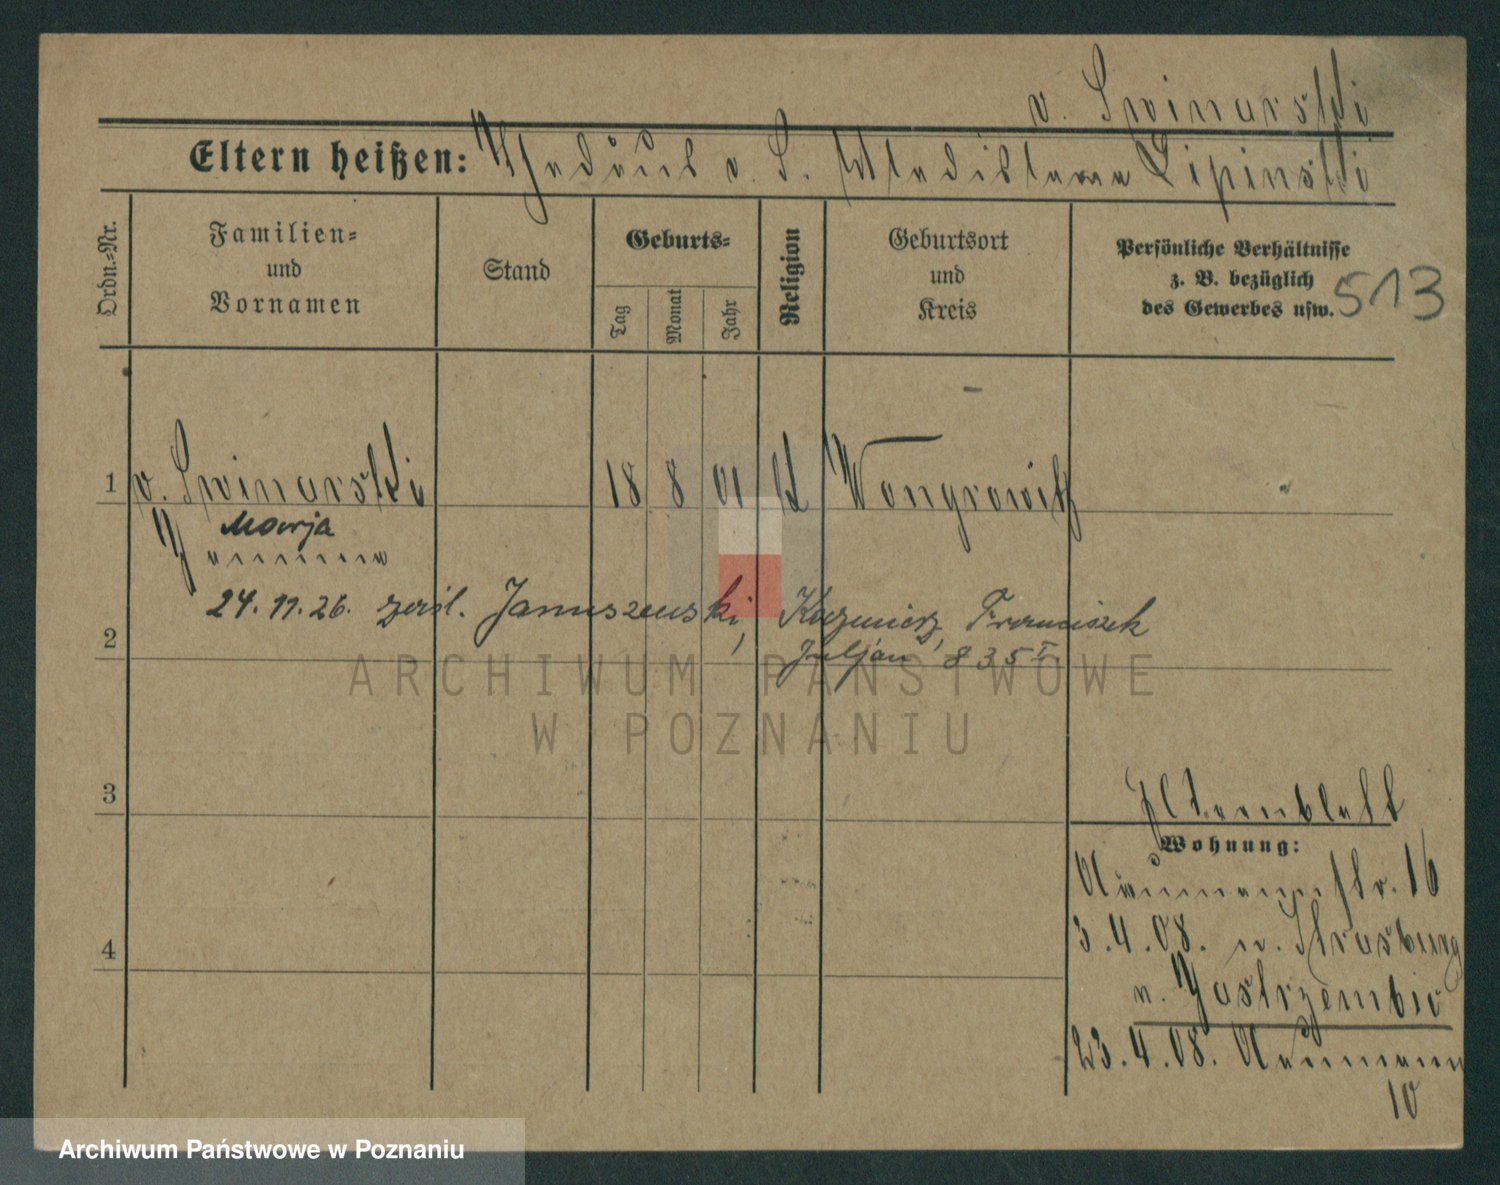 v. Swinarski
Eltern heißen: Thadäus v. S. Wladislawa Lipinski
Ordn.-Nr.
Familien-
und
Vornamen
Stand
Geburts-
Tag
Monat
Jahr
Religion
Geburtsort
und
Kreis
Persönliche Verhältnisse
z. B. bezüglich
des Gewerbes usw.
513
1 v. Swinarski 18 8 01 k Wongrowitz
Marja
24. 11. 26. zaśl. Januszewski, Kazimierz, Franciszek
2 Juljan, 835 I
ARCHIWUM PAŃSTWOWE
W POZNANIU
3
Elternblatt
Wohnung:
Naumannstr. 16
3.4.08. n. Strasburg
n. Jastrzembie
4
23.4.08. Naumann
10
Archiwum Państwowe w Poznaniu